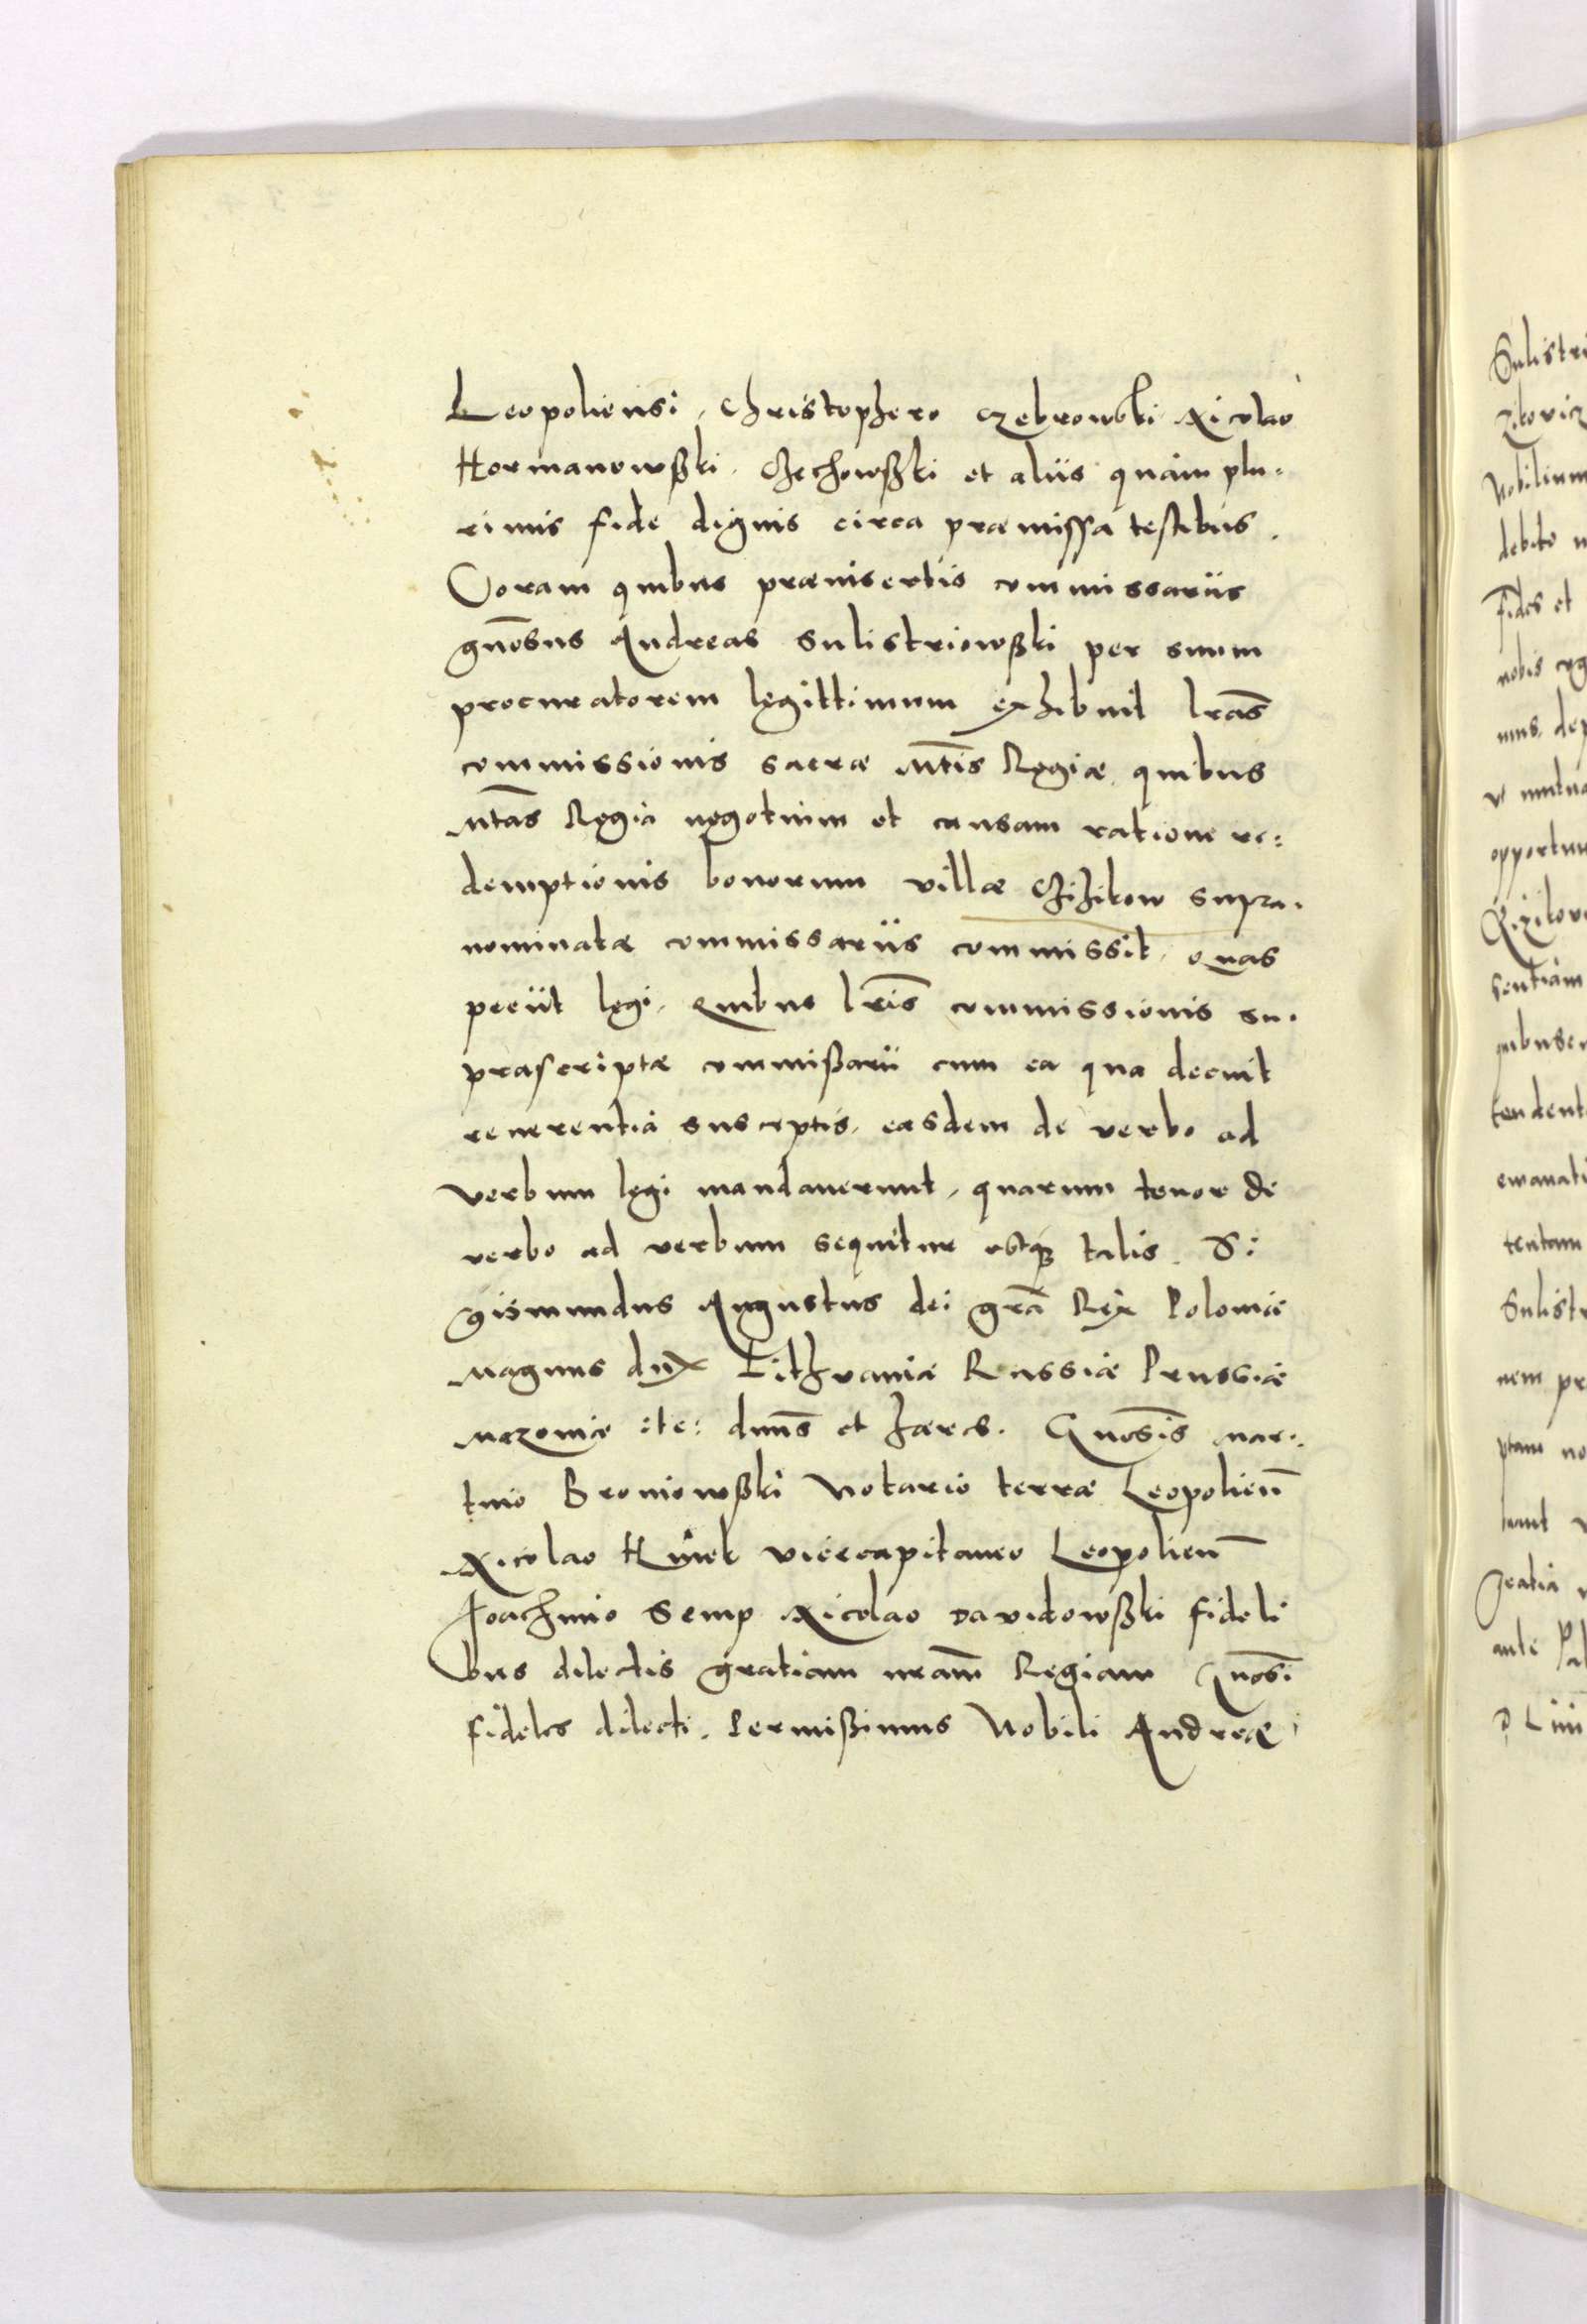 Leopoliensi, Christophero Czebrowski Nicolao
Hormanowßki, Chechowßki et aliis quàm plu-
rimis fide dignis circa præmissa testibus.
Coram quibus præinsertis commissariis
gñosus Andreas Sulistriowßki per suum
procuratorem legittimum exhibuit lras̃
commissionis sacræ Mt̃is Regiæ quibus
Mtãs Regia negotium et causam ratione re:
demptionis bonorum villæ Chihikow supra.
nominatæ commissariis commissit, quas
peciit legi. Quibus lrĩs commissionis su.
præscriptæ commißarii cum ea qua decuit
reuerentia susceptis, easdem de verbo ad
verbum legi mandauerunt, quarum tenor de
verbo ad verbum sequitur estq₃ talis. Si
gismundus Augustus dei grã Rex Poloniæ
Magnus dux Lithvaniæ Russiæ Prussiæ
Mazoniæ etc: dnũs et hæres. Gnosĩs Mar:
tino Broniowßki Notario terræ Leopolieñ
Nicolao Hynek vicecapitaneo Leopolieñ
Joachimo Semp Nicolao Davidowßki fideli
bus dilectis gratiam nrãm Regiam Gnosĩ
fideles dilecti. Permißimus Nobili Andreæ
Sulistri
Nobilium
debito
fides et
nobis
opportun
sentiam
tendent
tentam
Sulist
nem pr